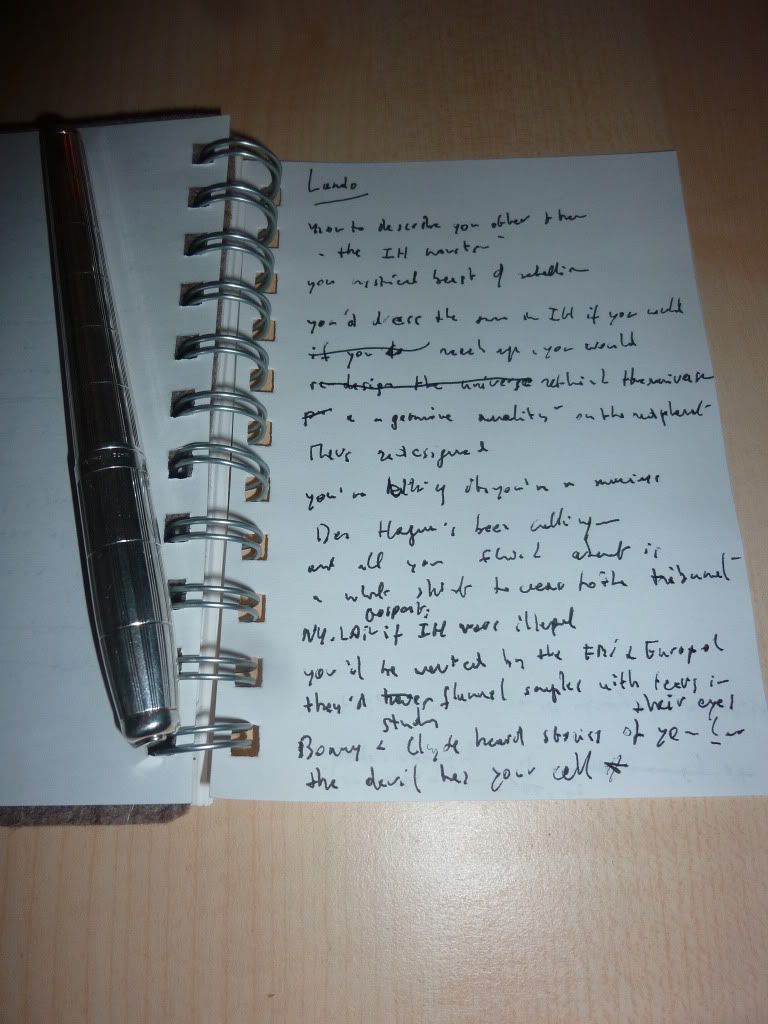 Lando
how to describe you other than
" the IH monster "
you mystical beast of rebellion
you'd dress the sun in IH if you could
if you to reach up, you would
re-design the universe rethink the universe
a genuine quality on the red planet
Mars redesigned
you're
Den Haague's been calling
and all you think about is
a which shirt to wear to the tribunal
NY, LA if IH was illegal
Gaspari
you'd be wanted by the FBI & Europol
they'd have flannel samples with tears in their eyes
study
Bonny & Clyde heard stories of you
the devil has your cell